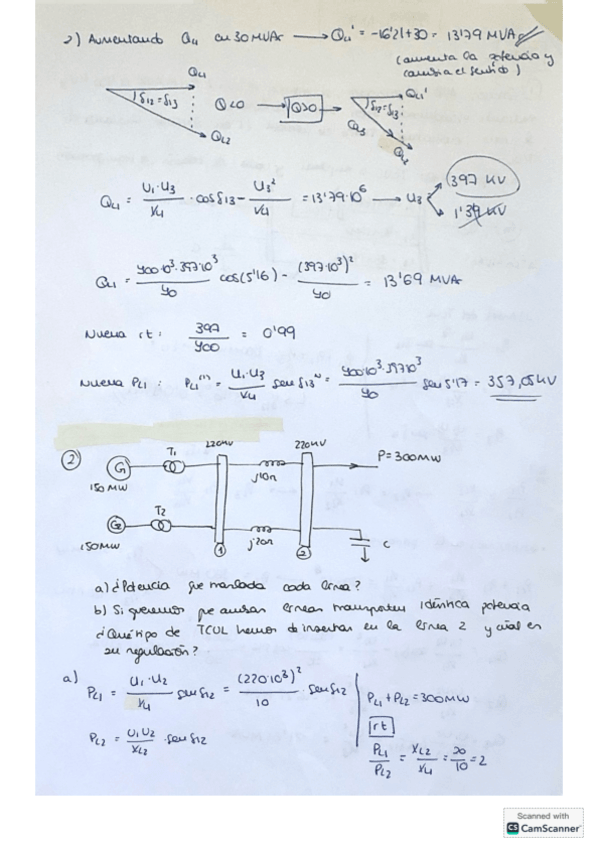 2) Aumentando QL1 en 30 MVAr → QL1' = -16'21+30 = 13'79 MVAr
(aumenta la potencia y
cambia el sentido)
QL1
δ12=δ13
QL2
Q<0 → Q>0 →
QL1'
δ12=δ13
QL3
QL2
QL1 = U1·U3/XL1 · cosδ13 - U3²/XL1 = 13'79·10⁶ → U3
397 KV
1'39 KV
QL1 = 400·10³·397·10³/40 cos(5'16) - (397·10³)²/40 = 13'69 MVAr
Nueva rt: 397/400 = 0'99
Nueva PL1: PL1⁽ⁿ⁾ = U1·U3/XL1 senδ13ᴺ = 400·10³·397·10³/40 sen 5'17 = 357,05 KV
2
G1
T1
220KV
220KV
P=300MW
150 MW
j10Ω
G2
T2
150MW
1
j20Ω
2
C
a) ¿Potencia que manda cada línea?
b) Si queremos que ambas líneas transporten idéntica potencia
¿Qué tipo de TCUL hemos de insertar en la línea 2 y cuál es
su regulación?
a) PL1 = U1·U2/XL1 senδ12 = (220·10³)²/10 · senδ12
PL2 = U1U2/XL2 · senδ12
PL1 + PL2 = 300MW
rt
PL1/PL2 = XL2/XL1 = 20/10 = 2
Scanned with
CS CamScanner